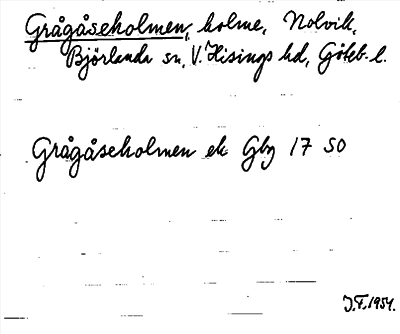 Grågåseholmen, holme, Nolvik,
Björlanda sn, V. Hisings hd, Göteb. l.
Grågåseholmen ek Gbg 17 SO
J.F. 1954.